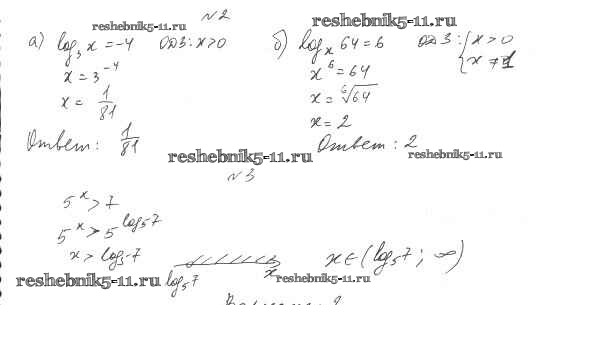 №2
reshebnik5-11.ru
reshebnik5-11.ru
а) log₃ x = -4   ОДЗ: x > 0
x = 3⁻⁴
x = 1/81
Ответ: 1/81
б) logₓ 64 = 6   ОДЗ: { x > 0
x ≠ 1
x⁶ = 64
x = ⁶√64
x = 2
Ответ: 2
reshebnik5-11.ru
reshebnik5-11.ru
№3
5ˣ > 7
5ˣ > 5^log₅7
x > log₅7
log₅7
x
x ∈ (log₅7; ∞)
reshebnik5-11.ru
reshebnik5-11.ru